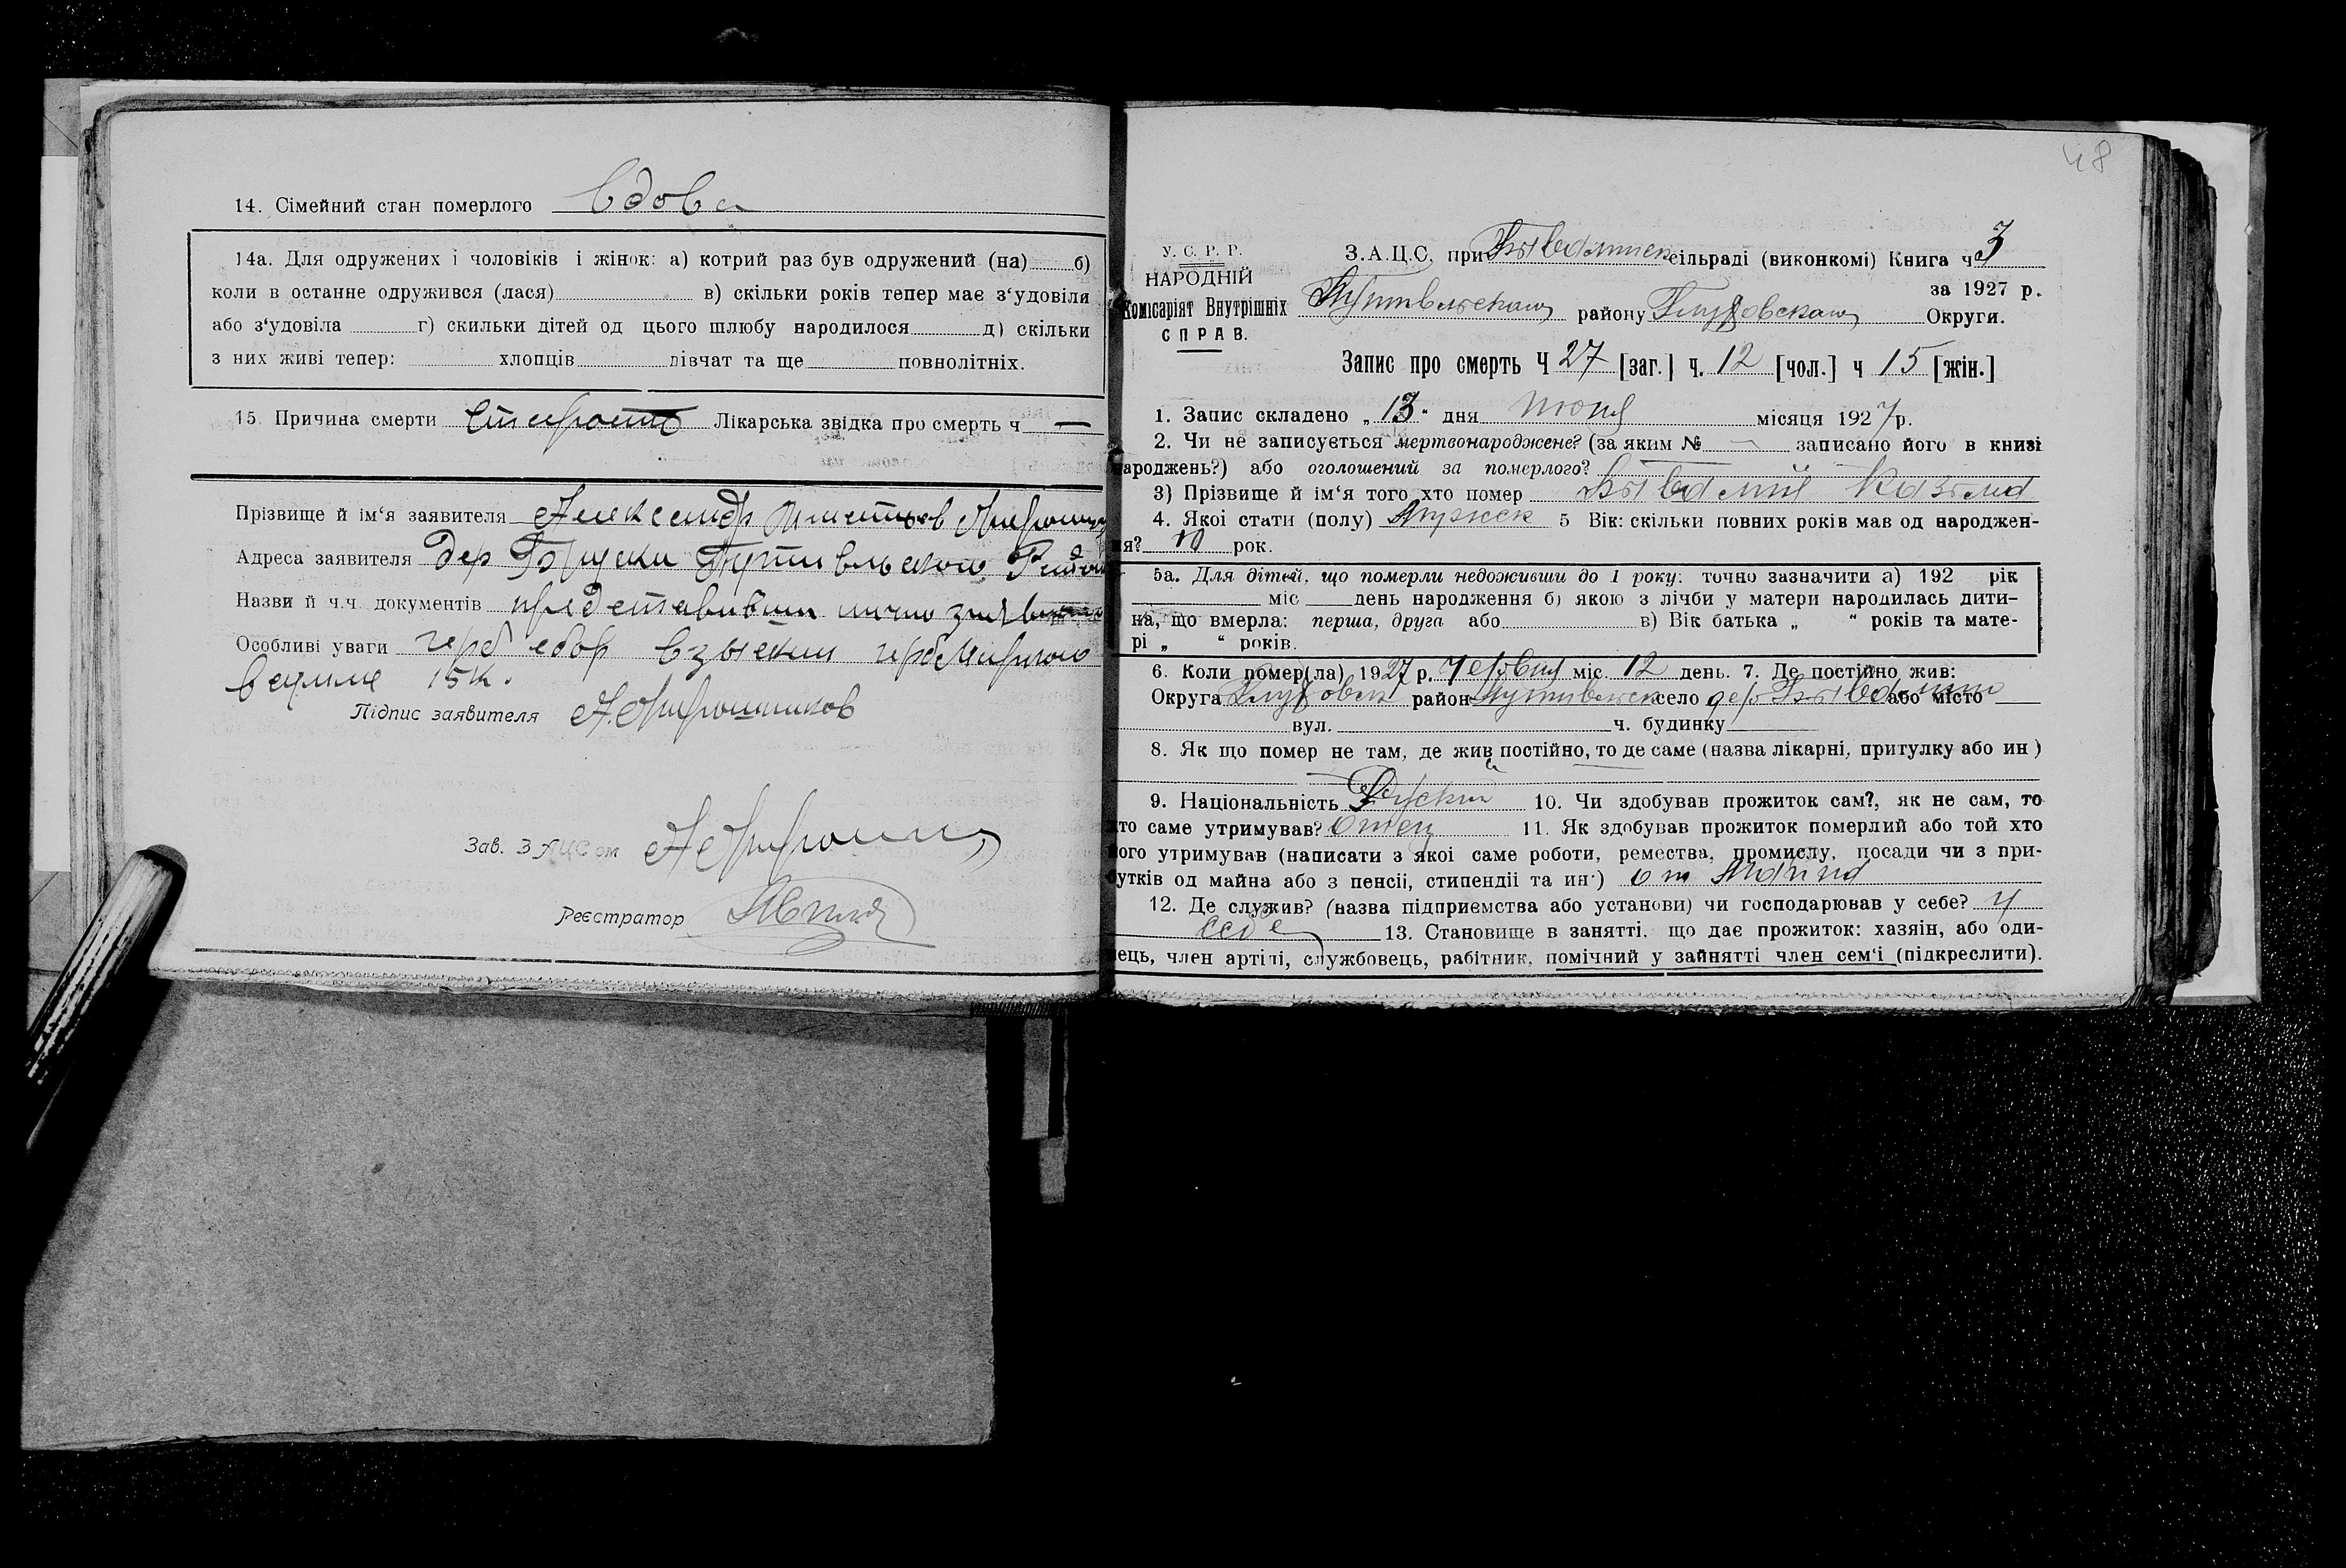 14. Сімейний стан померлого Вдова
14а. Для одружених і чоловіків і жінок: а) котрий раз був одружений (на) б)
коли в останне одружився (лася) в) скільки років тепер має з‘удовіли
або з‘удовіла г) скильки дітей од цього шлюбу народилося д) скільки
з них живі тепер: хлопців дівчат та ще повнолітніх.
15 Причина смерти Старость Лікарська звідка про смерть ч —
Прізвище й ім‘я заявителя Александр
Адреса заявителя дер Путивльского
Назви й ч.ч. документів лично
Особливі уваги герб сбор взыскан
в сумме 15к.
Підпис заявителя
Зав. ЗАЦСом
Реєстратор
48
У. С. Р. Р.
НАРОДНІЙ
Комісаріят Внутрішніх
СПРАВ.
З.А.Ц.С. при сільраді (виконкомі) Книга ч 3
за 1927 р.
Путивльскаго району Глуховскаго Округи.
Запис про смерть Ч 27 [заг.] ч. 12 [чол.] ч 15 [жін.]
1. Запис складено „13“ дня июня місяця 1927р.
2. Чи не записується мертвонароджене? (за яким № — записано його в книзі
народжень?) або оголошений за померлого?
3) Прізвище й ім‘я того хто помер
4. Якої стати (полу) Мужск 5 Вік: скільки повних років мав од народжен-
ня? 10 рок.
5а. Для дітей, що померли недоживши до 1 року: точно зазначити а) 192 рік
міс день народження б) якою з лічби у матери народилась дити-
на, що вмерла: перша, друга або в) Вік батька „ “ років та мате-
рі „ “ років.
6. Коли помер(ла) 1927 р. червня міс. 12 день. 7. Де постійно жив:
Округа Глуховск район Путивльск село дер або місто
вул. ч. будинку
8. Як що помер не там, де жив постійно, то де саме (назва лікарні, притулку або ин)
9. Національність Руский 10. Чи здобував прожиток сам?, як не сам, то
хто саме утримував? Отец 11. Як здобував прожиток померлий або той хто
його утримував (написати з якої саме роботи, ремества, промислу, посади чи з при-
бутків од майна або з пенсії, стипендії та ин·) от
12. Де служив? (назва підприємства або установи) чи господарював у себе? у
себе 13. Становище в занятті, що дає прожиток: хазяін, або оди-
нець, член артілі, службовець, рабітник, помічний у зайнятті член сем‘і (підкреслити).